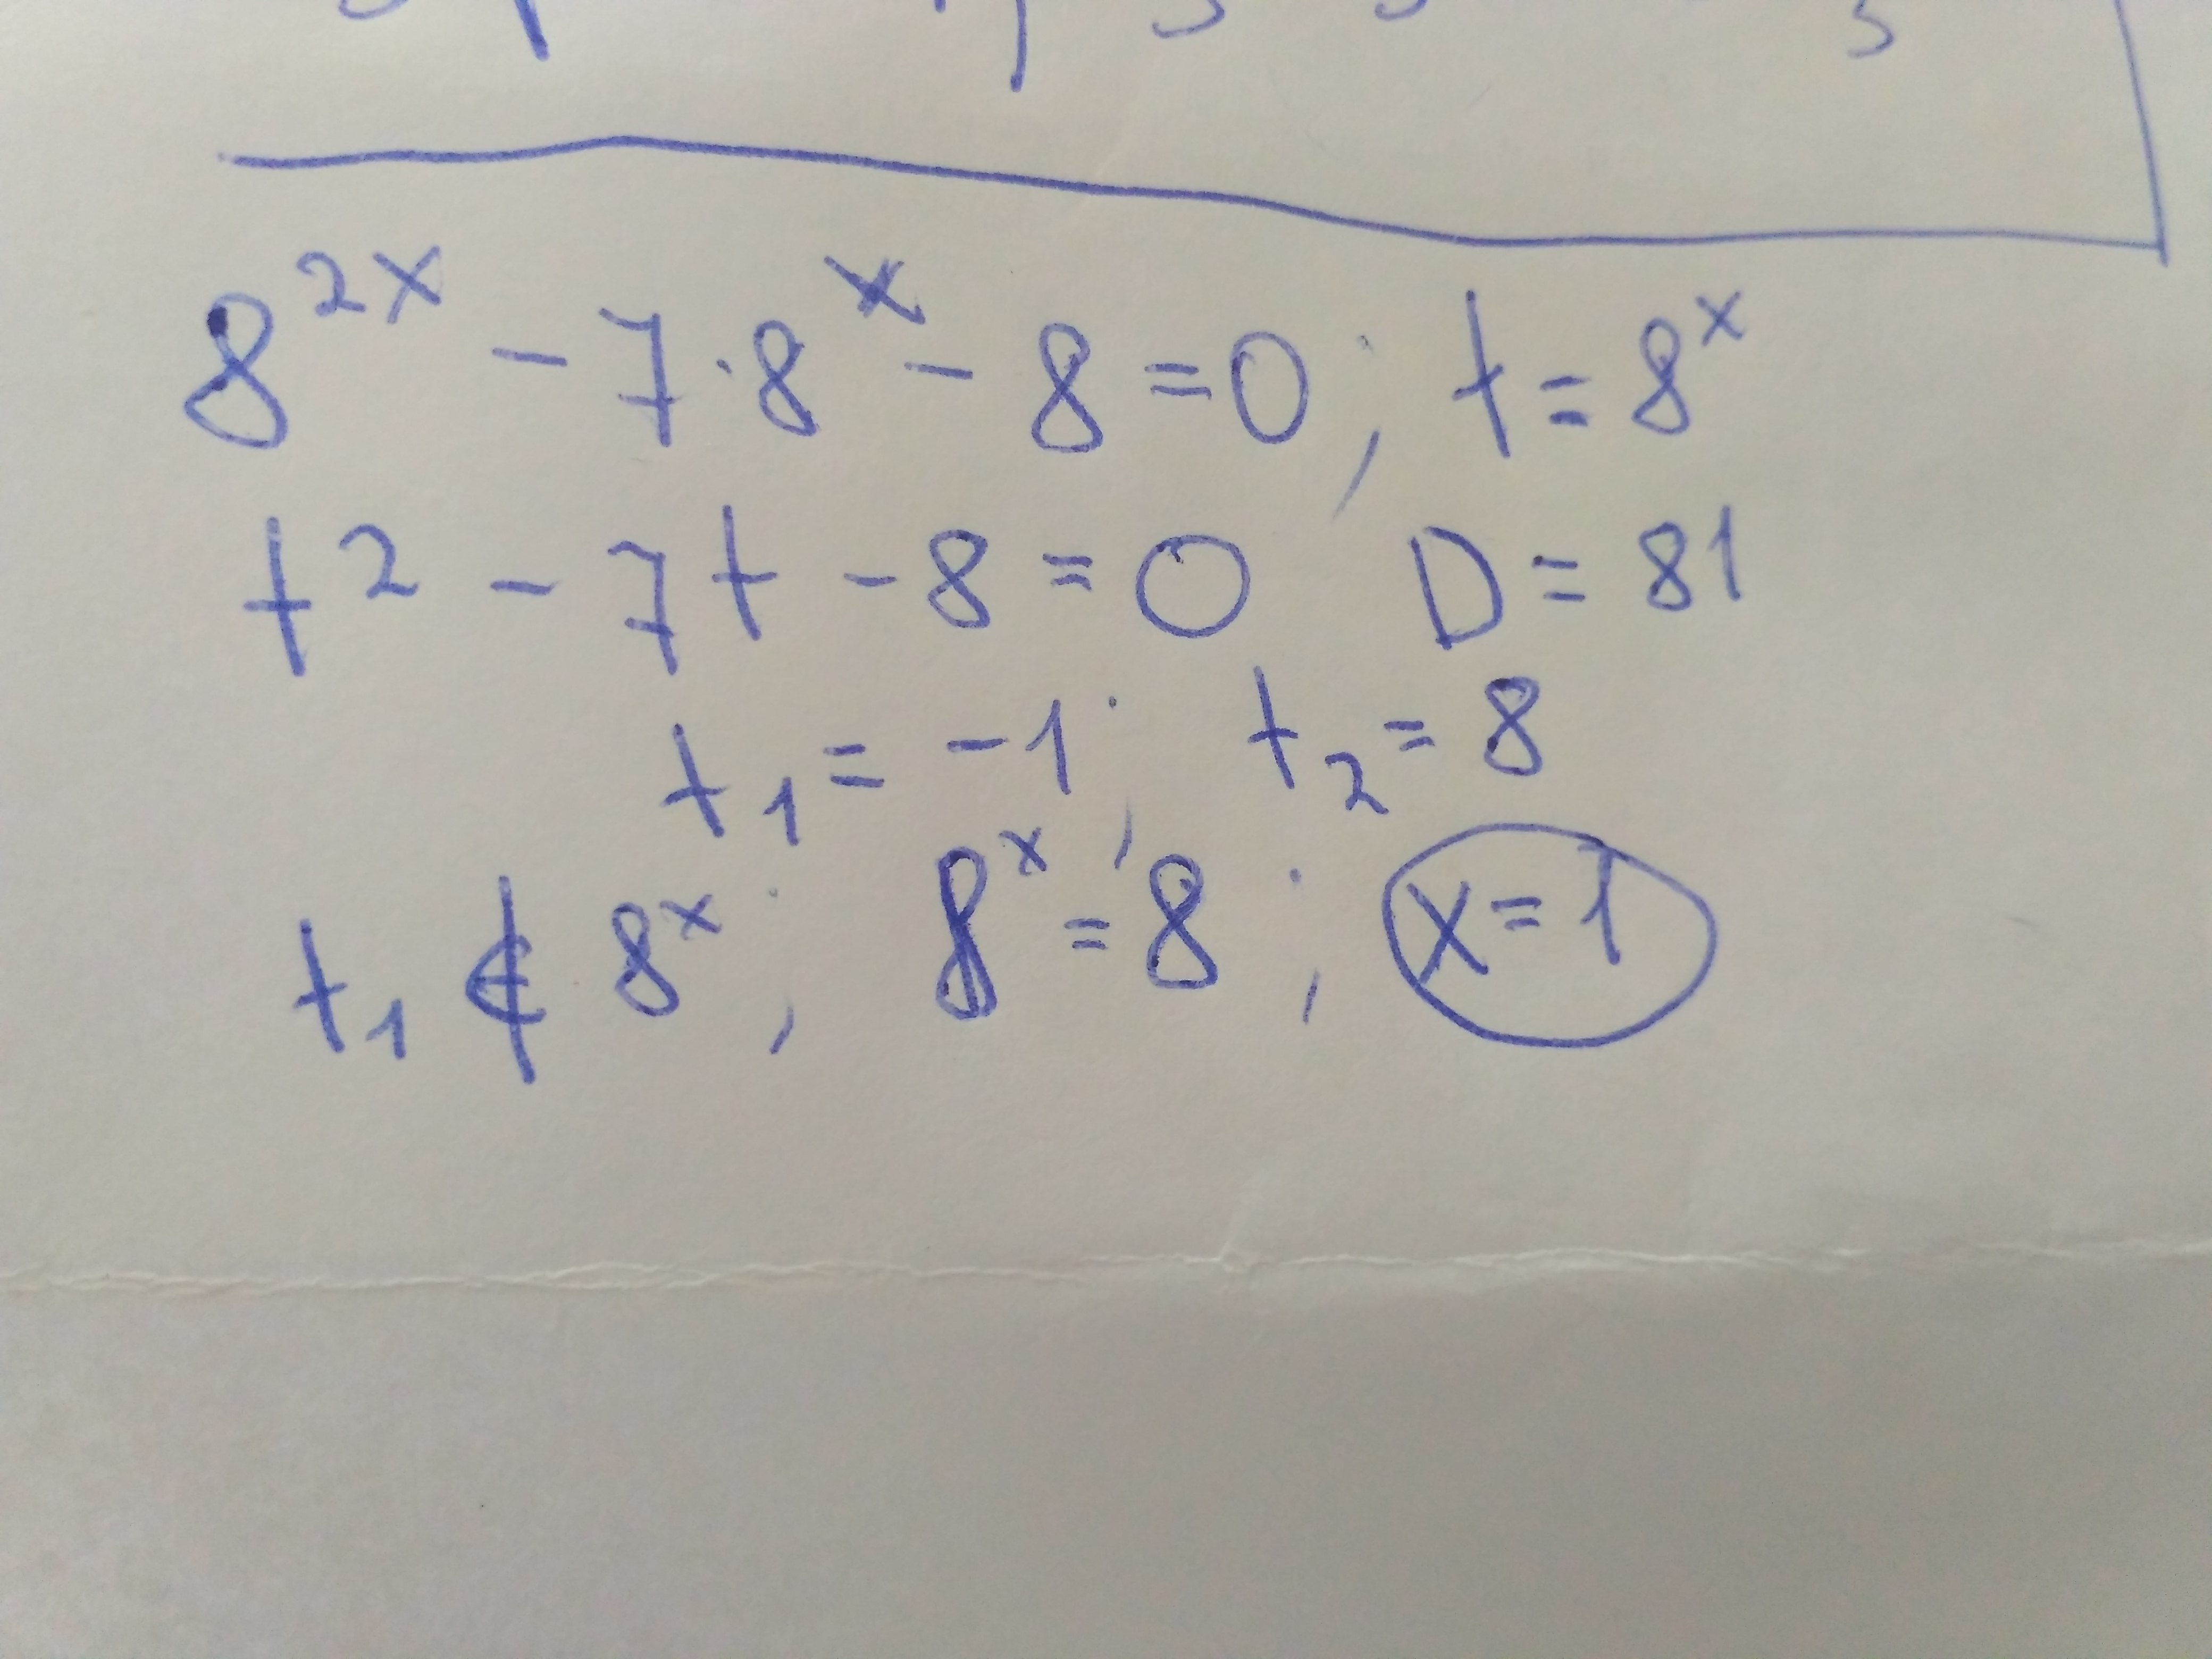 8²ˣ - 7·8ˣ - 8 = 0; t = 8ˣ
t² - 7t - 8 = 0 D = 81
t₁ = -1; t₂ = 8
t₁ ∉ 8ˣ; 8ˣ = 8; x = 1